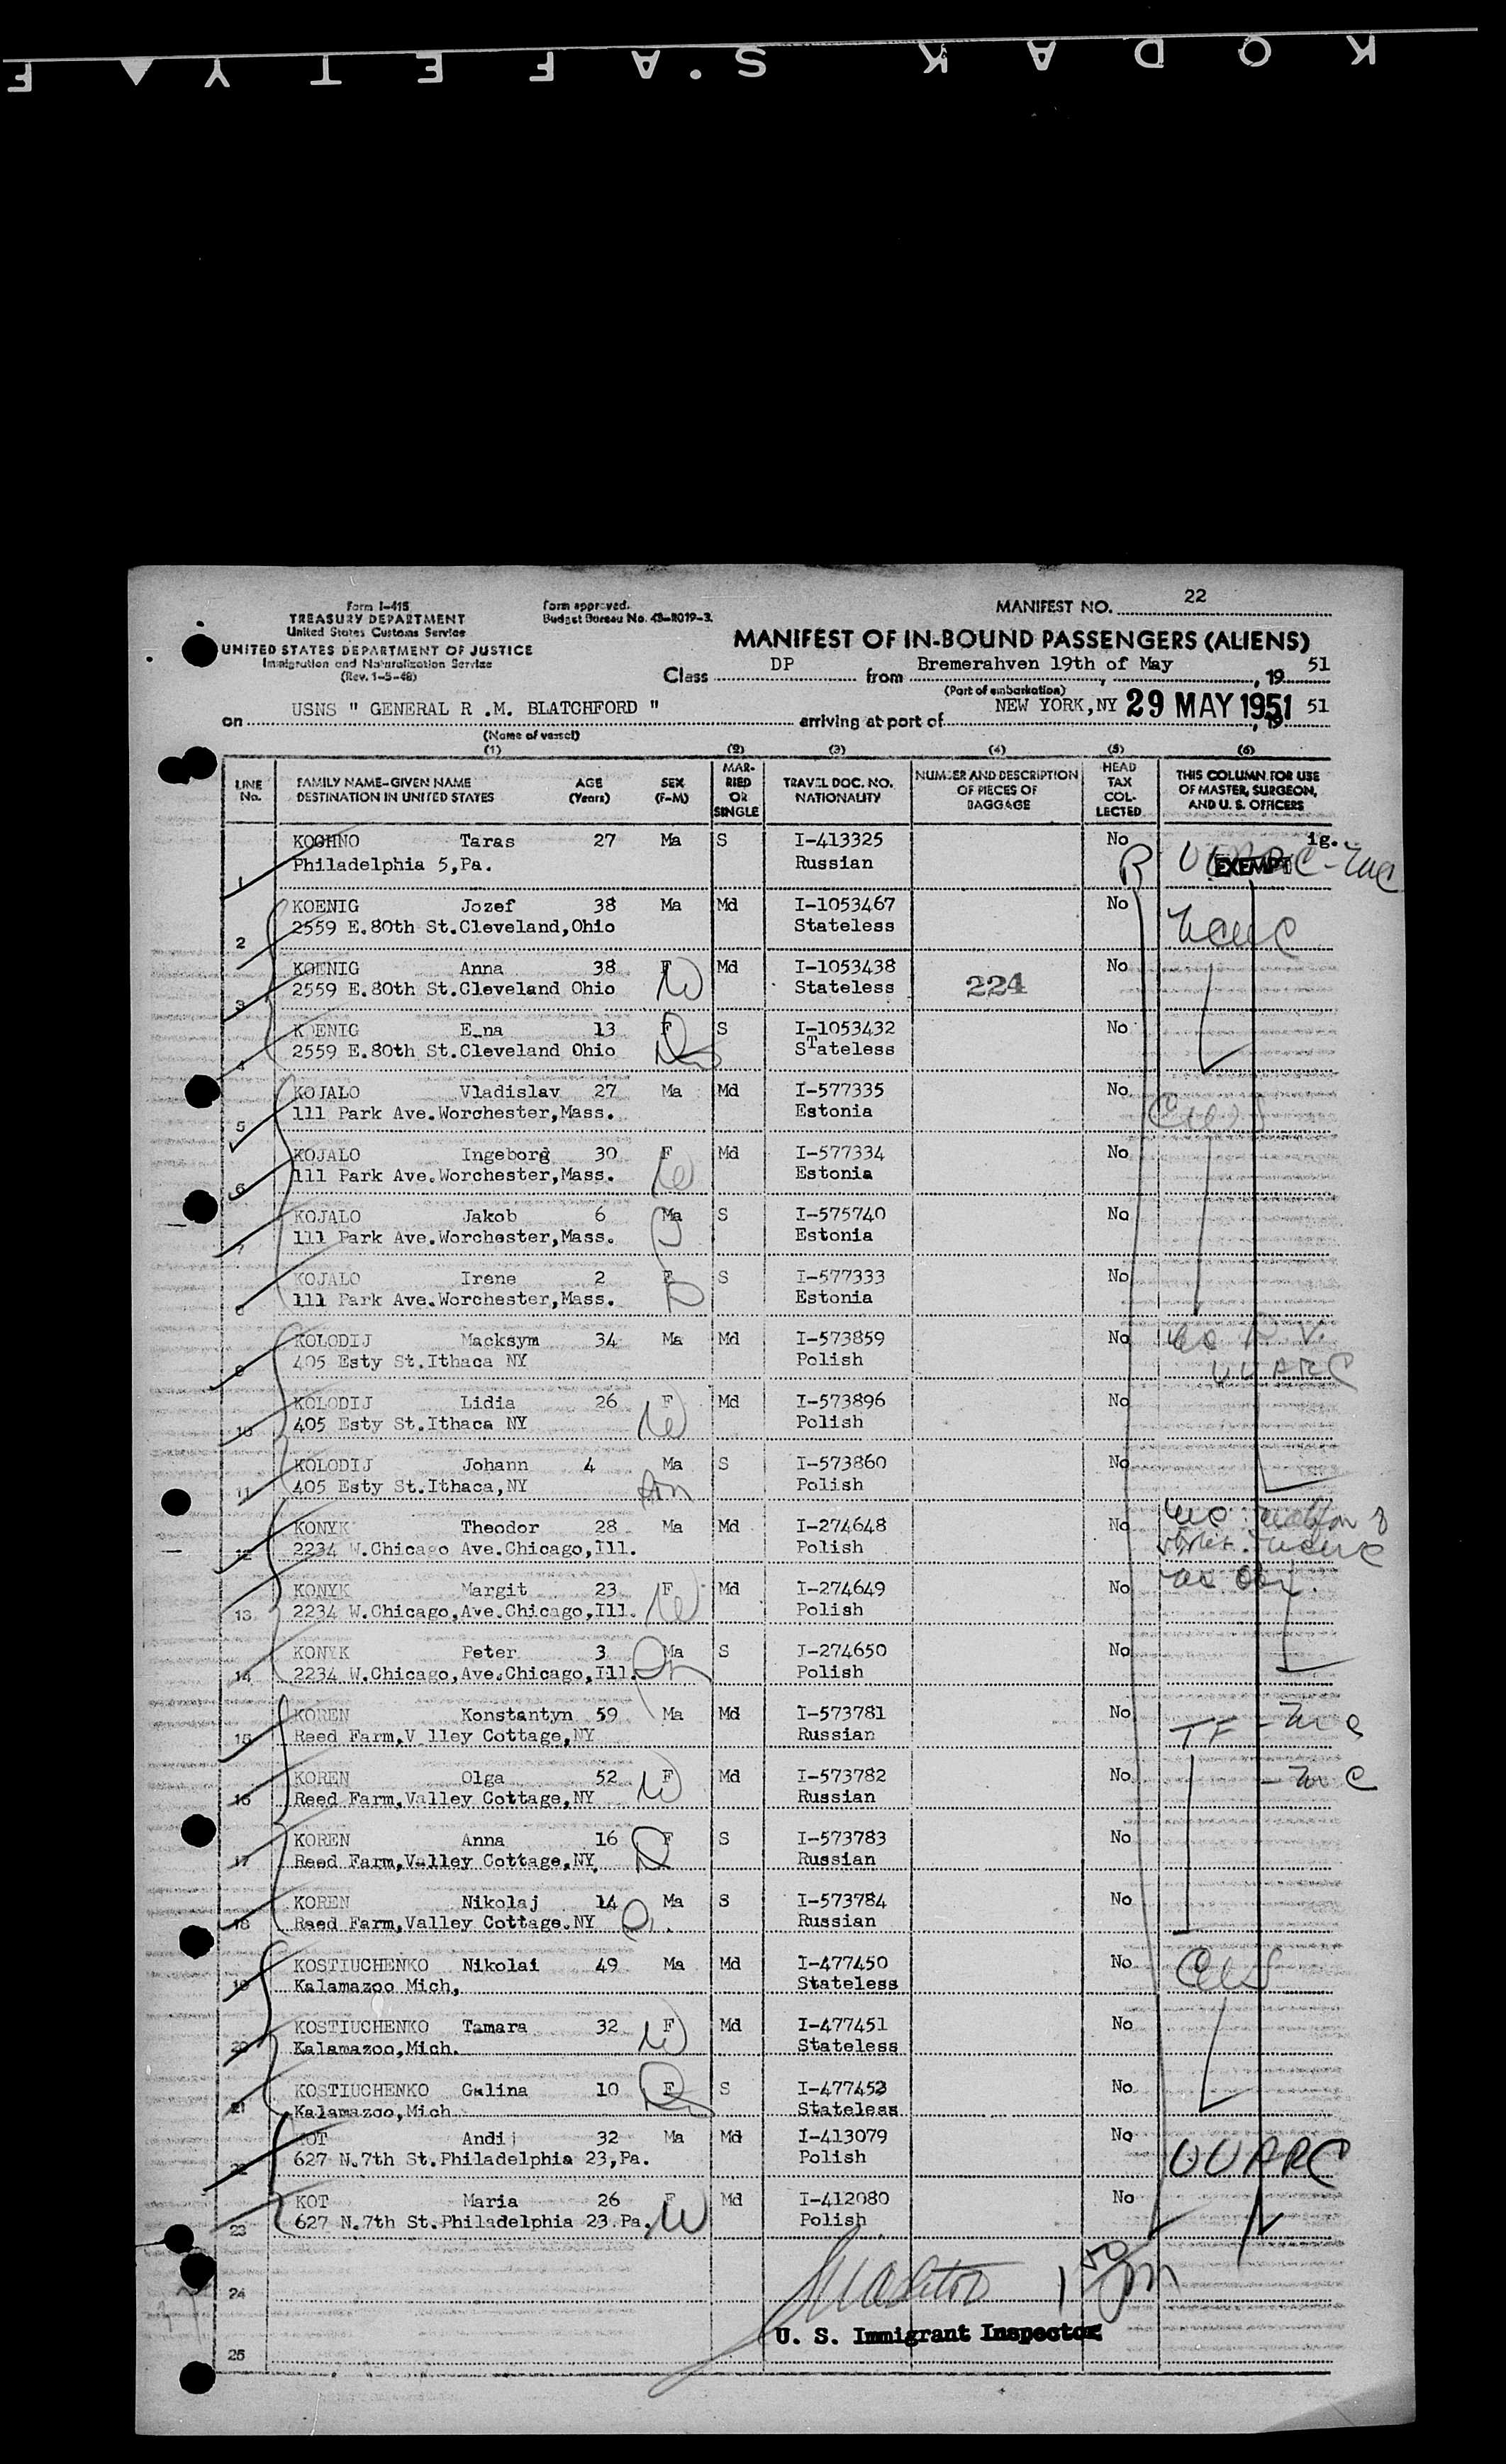 KODAK S.AFETY F
Form I-415
TREASURY DEPARTMENT
United States Customs Service
UNITED STATES DEPARTMENT OF JUSTICE
Immigration and Naturalization Service
(Rev. 1-5-48)
Form approved.
Budget Bureau No. 43-R019-3.
MANIFEST NO. 22
MANIFEST OF IN-BOUND PASSENGERS (ALIENS)
Class DP from Bremerahven 19th of May, 19 51
(Port of embarkation)
on USNS " GENERAL R .M. BLATCHFORD " arriving at port of NEW YORK,NY 29 MAY 1951, 19 51
(Name of vessel)
(1) (2) (3) (4) (5) (6)
LINE No. FAMILY NAME-GIVEN NAME DESTINATION IN UNITED STATES AGE (Years) SEX (F-M) MARRIED OR SINGLE TRAVEL DOC. NO. NATIONALITY NUMBER AND DESCRIPTION OF PIECES OF BAGGAGE HEAD TAX COLLECTED THIS COLUMN FOR USE OF MASTER, SURGEON, AND U. S. OFFICERS
KOCHNO Taras 27 Ma S I-413325 No ig.
1 Philadelphia 5,Pa. Russian EXEMPT
KOENIG Jozef 38 Ma Md I-1053467 No
2 2559 E.80th St.Cleveland,Ohio Stateless
KOENIG Anna 38 F Md I-1053438 No
3 2559 E.80th St.Cleveland Ohio Stateless 224
KOENIG E na 13 F S I-1053432 No
4 2559 E.80th St.Cleveland Ohio STateless
KOJALO Vladislav 27 Ma Md I-577335 No
5 111 Park Ave.Worchester,Mass. Estonia
KOJALO Ingeborg 30 F Md I-577334 No
6 111 Park Ave.Worchester,Mass. Estonia
KOJALO Jakob 6 Ma S I-575740 No
7 111 Park Ave.Worchester,Mass. Estonia
KOJALO Irene 2 F S I-577333 No
8 111 Park Ave.Worchester,Mass. Estonia
KOLODIJ Macksym 34 Ma Md I-573859 No
9 405 Esty St.Ithaca NY Polish UUARC
KOLODIJ Lidia 26 F Md I-573896 No
10 405 Esty St.Ithaca NY Polish
KOLODIJ Johann 4 Ma S I-573860 No
11 405 Esty St.Ithaca,NY Polish
KONYK Theodor 28 Ma Md I-274648 No
12 2234 W.Chicago Ave.Chicago,Ill. Polish
KONYK Margit 23 F Md I-274649 No
13 2234 W.Chicago,Ave.Chicago,Ill. Polish
KONYK Peter 3 Ma S I-274650 No
14 2234 W.Chicago,Ave.Chicago,Ill. Polish
KOREN Konstantyn 59 Ma Md I-573781 No
15 Reed Farm,V lley Cottage,NY Russian TF
KOREN Olga 52 F Md I-573782 No
16 Reed Farm,Valley Cottage,NY Russian
KOREN Anna 16 F S I-573783 No
17 Reed Farm,Valley Cottage,NY Russian
KOREN Nikolaj 14 Ma S I-573784 No
18 Reed Farm,Valley Cottage.NY Russian
KOSTIUCHENKO Nikolai 49 Ma Md I-477450 No
19 Kalamazoo Mich, Stateless
KOSTIUCHENKO Tamara 32 F Md I-477451 No
20 Kalamazoo,Mich. Stateless
KOSTIUCHENKO Galina 10 F S I-477452 No
21 Kalamazoo,Mich Stateless
KOT Andij 32 Ma Md I-413079 No
22 627 N.7th St.Philadelphia 23,Pa. Polish UUARC
KOT Maria 26 F Md I-412080 No
23 627 N.7th St.Philadelphia 23.Pa. Polish
24
U. S. Immigrant Inspector
25